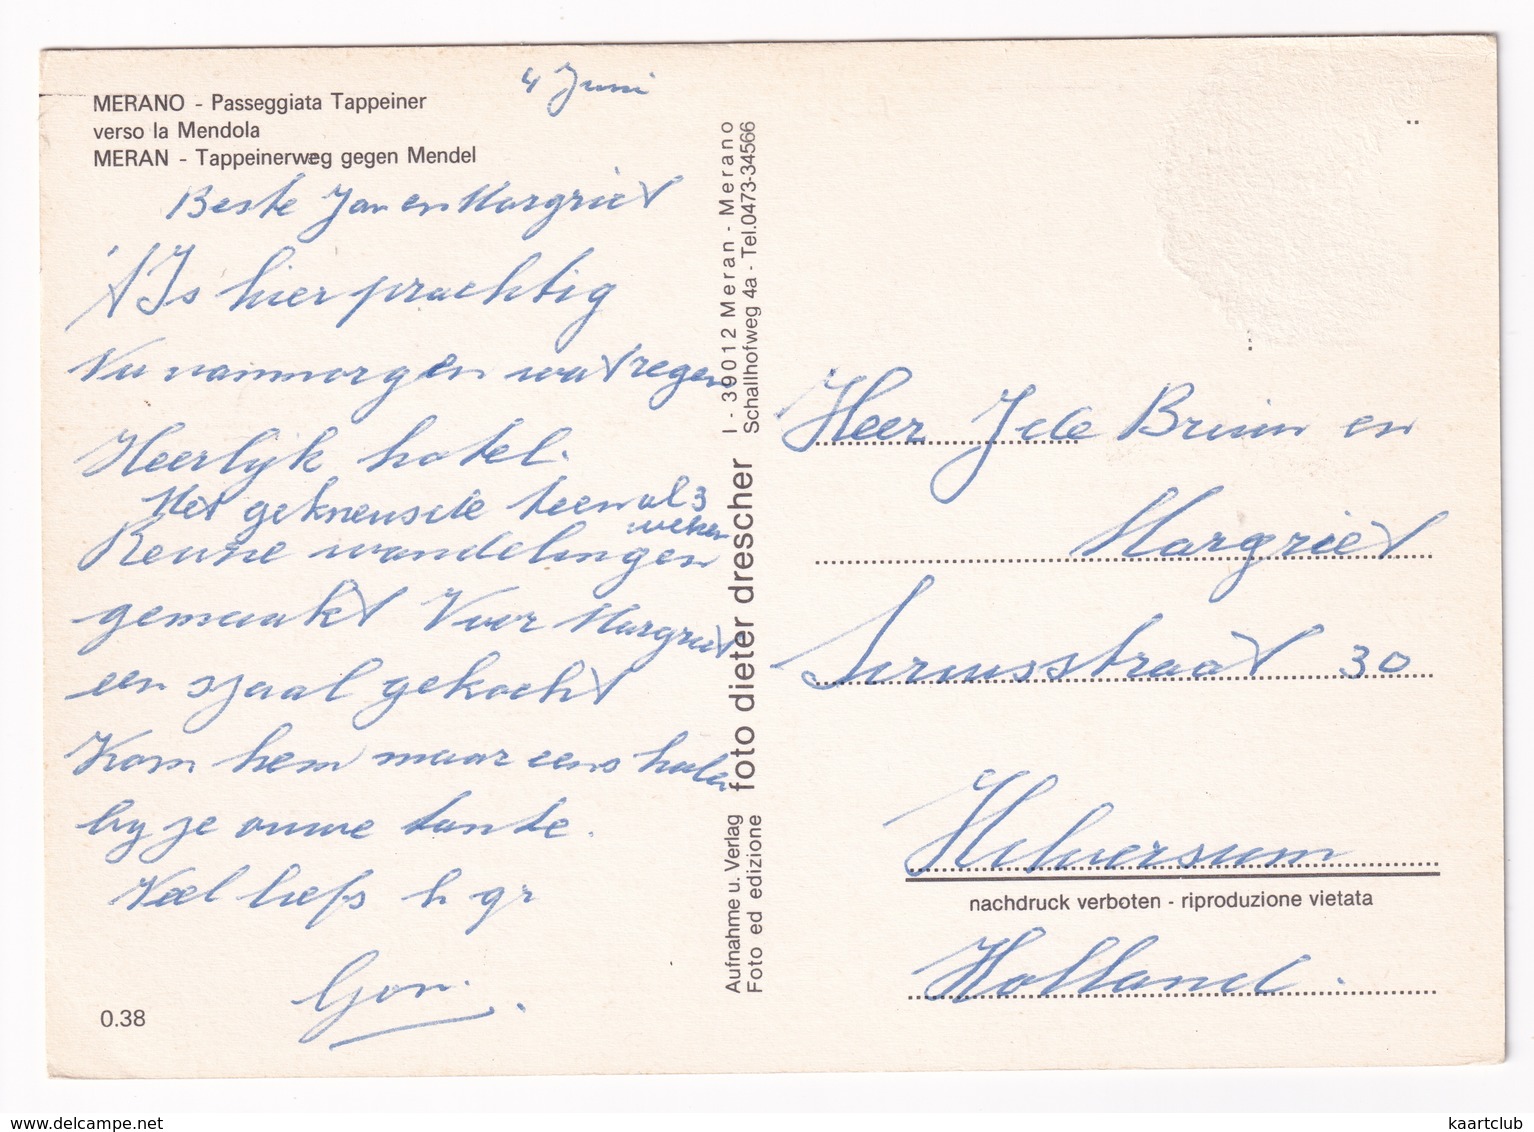 4 Juni
MERANO - Passeggiata Tappeiner
verso la Mendola
MERAN - Tappeinerweg gegen Mendel
Beste Jan en Margriet
't Is hier prachtig
Nu vanmorgen wat regen
Heerlijk hotel.
Met gekneusde teen al 3
weken
Reuze wandelingen
gemaakt Voor Margriet
een sjaal gekocht
Kom hem maar eens halen
by je ouwe tante.
Veel liefs h gr
Gon.
0.38
I - 39012 Meran - Merano
Schallhofweg 4a - Tel.0473-34566
foto dieter drescher
Aufnahme u. Verlag
Foto ed edizione
Heer J de Bruin en
Margriet
Siriusstraat 30
Hilversum
nachdruck verboten - riproduzione vietata
Holland.
www.delcampe.net
kaartclub